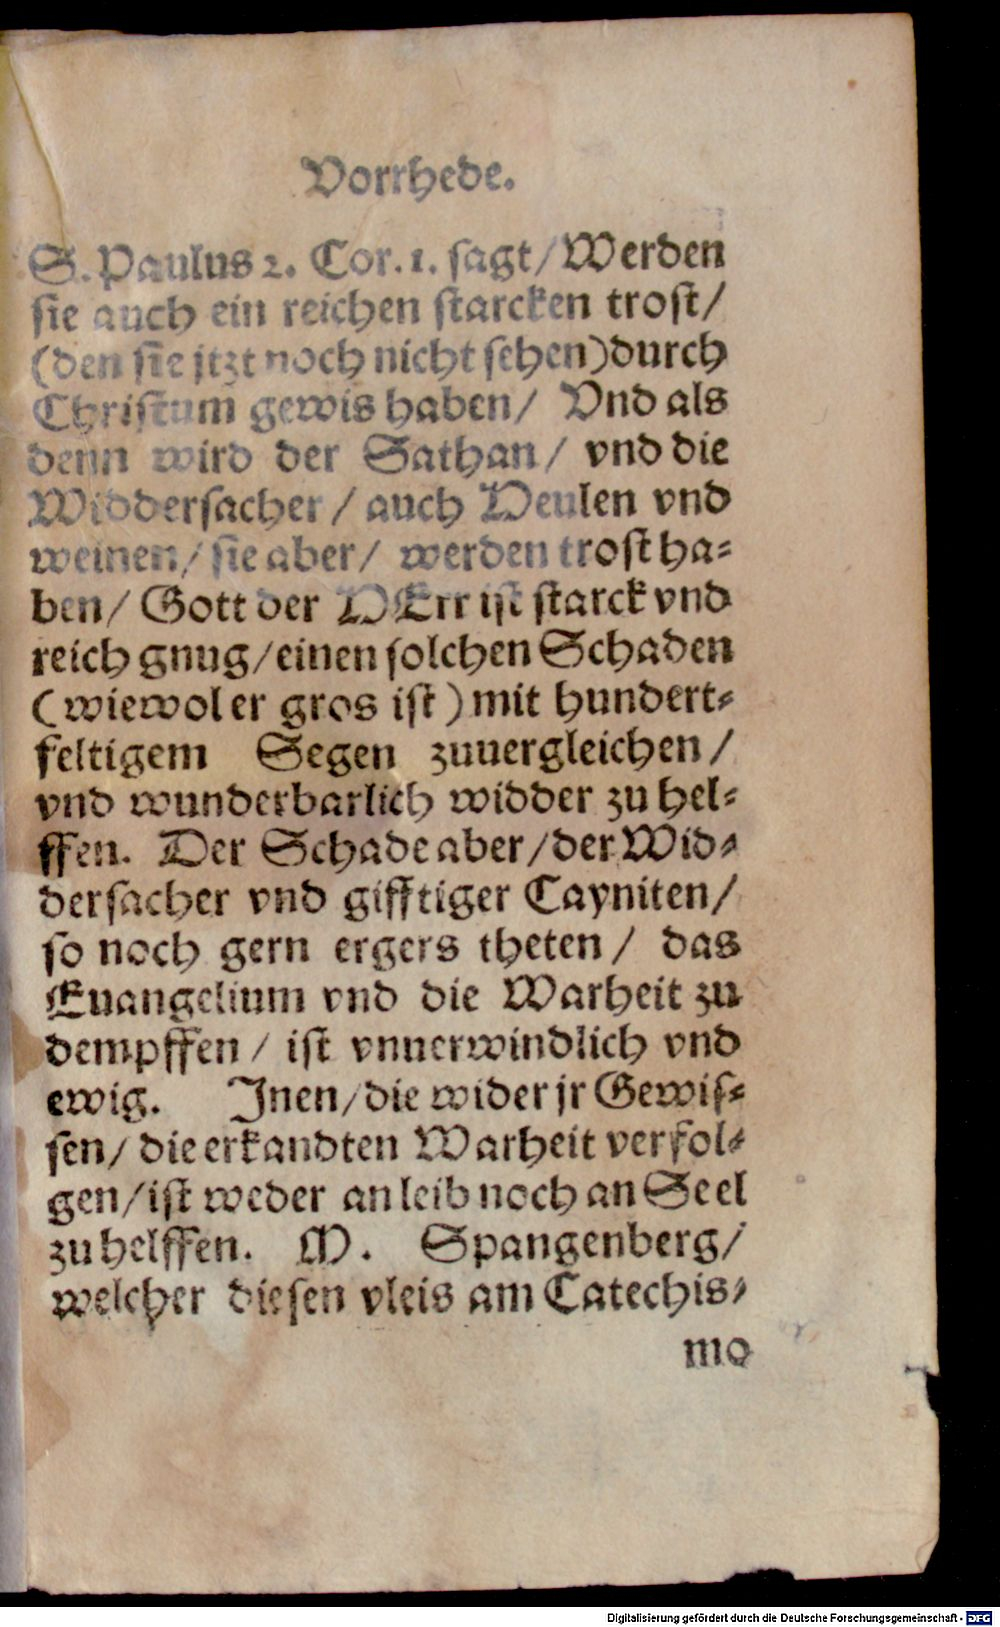 Vorrhede.
S. Paulus 2. Cor. 1. sagt/ Werden
sie auch ein reichen starcken trost/
(den sie jtzt noch nicht sehen) durch
Christum gewis haben/ Vnd als
denn wird der Sathan/ vnd die
Widdersacher/ auch Heulen vnd
weinen/ sie aber/ werden trost ha-
ben/ Gott der HErr ist starck vnd
reich gnug/ einen solchen Schaden
(wiewol er gros ist) mit hundert-
feltigem Segen zuuergleichen/
vnd wunderbarlich widder zu hel-
ffen. Der Schade aber/ der Wid-
dersacher vnd gifftiger Cayniten/
so noch gern ergers theten/ das
Euangelium vnd die Warheit zu
dempffen/ ist vnuerwindlich vnd
ewig. Jnen/ die wider jr Gewis-
sen/ die erkandten Warheit verfol-
gen/ ist weder an leib noch an Seel
zu helffen. M. Spangenberg/
welcher diesen vleis am Catechis-
mo
Digitalisierung gefördert durch die Deutsche Forschungsgemeinschaft - DFG